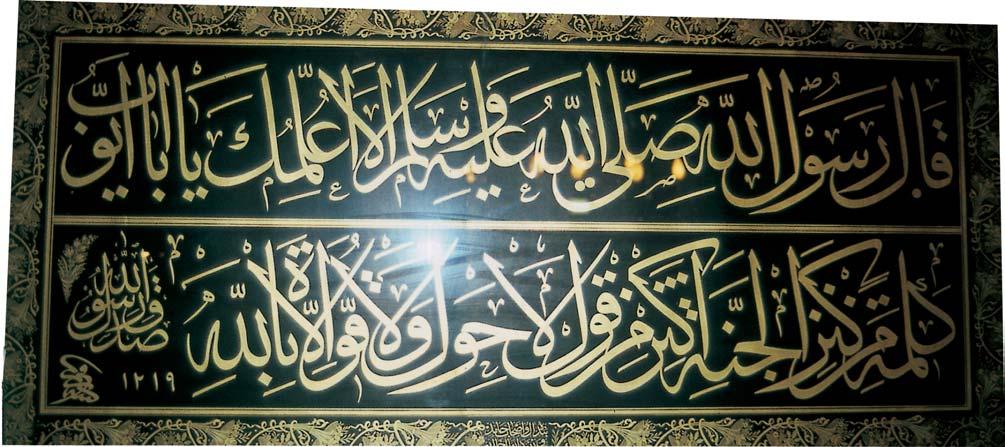 قال رسول الله صلى الله عليه وسلم الا اعلمك يا ابا ايوب
كلمة من كنز الجنة اكثر من قول لا حول ولا قوة الا بالله
صدق رسول الله
١٢١٩